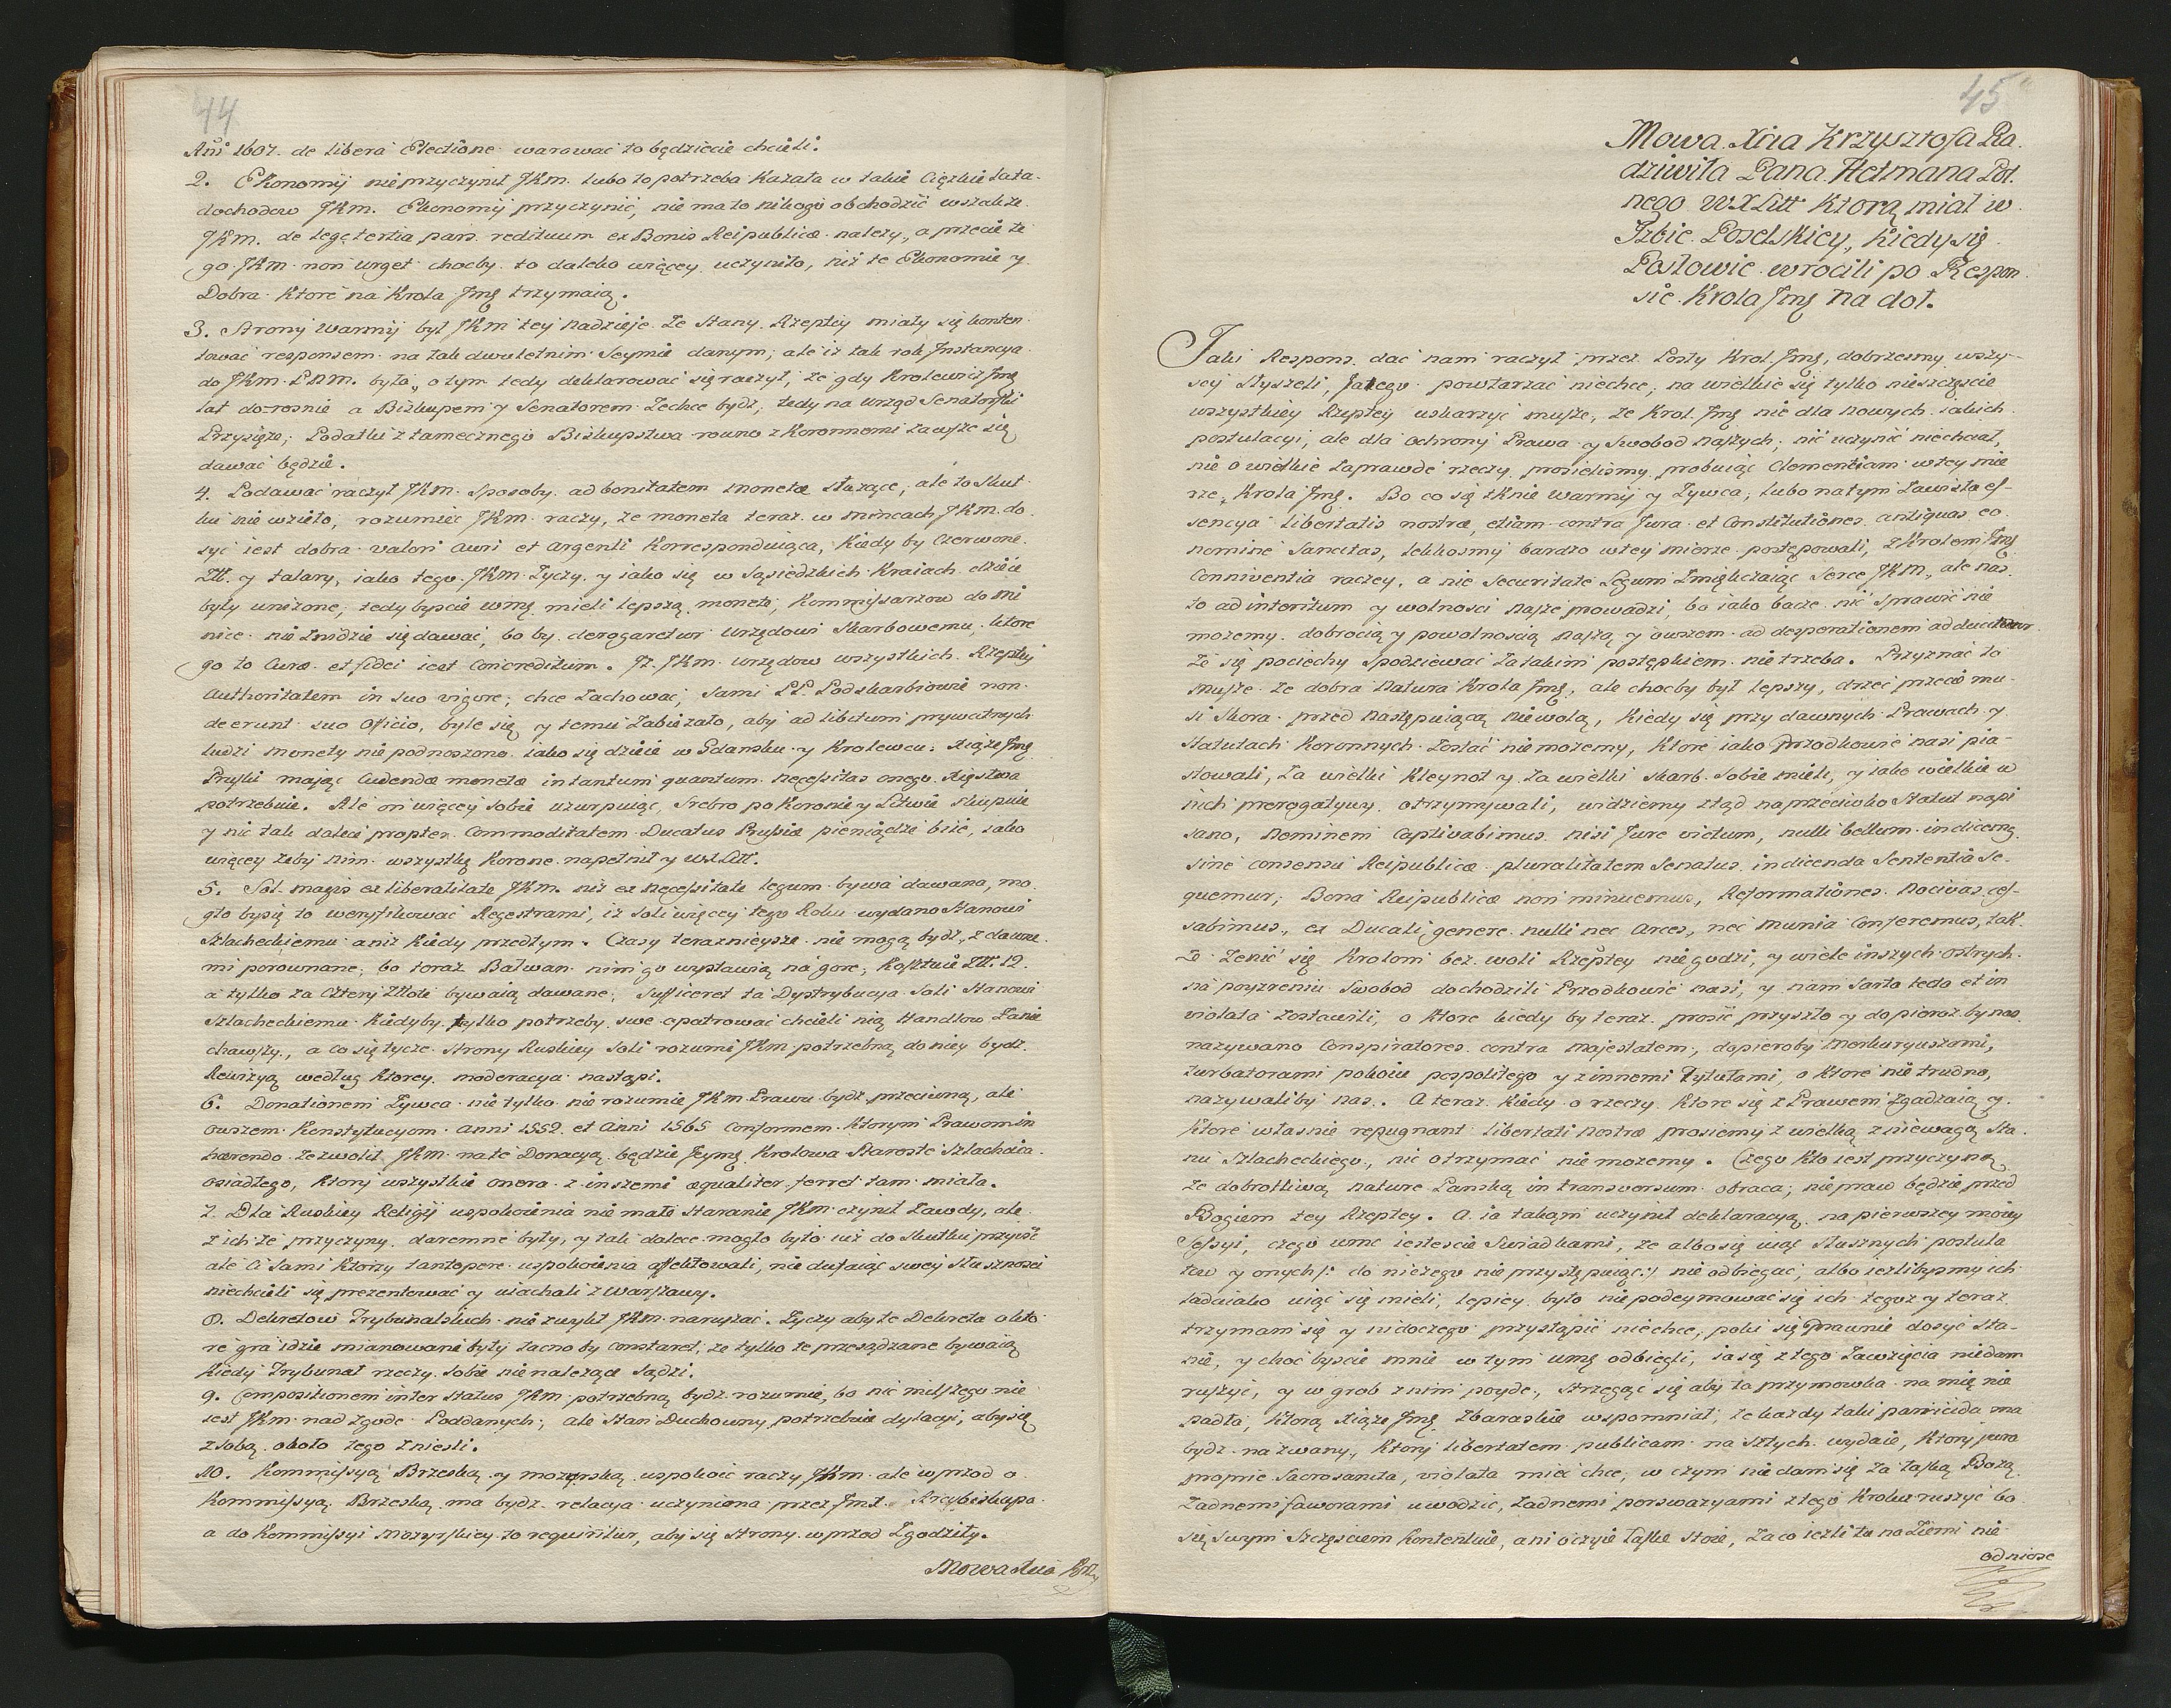 44
Ani 1607. de libera Electione warować to będziecie chcieli.
2. Ekonomij nieprzyczynił JKm. lubo to potrzeba kazała w takie Cięzkie lata.
dochodow JKm. Ekonomij przyczynić, nie ma to nikogo obchodzić wszakze
JKm. de lege tertia pars redituum ex Bonis Reipublicæ nalezy, a przecie te
go JKm non urget choćby to daleko więcey uczyniło, niż te Ekonomie y
Dobra ktore na Krola Jmę trzymaią.
3. Strony Warmij był JKm tey nadzieje ze Stany Rzeptey miały się konten
tować responsem na tak dwuletnim Seymie danym; ale iż tak rok Instancya
do JKm. PNM. była, o tym tedy deklarować się raczył, że gdy Krolewicz Jmę
lat do-rosnie a Biskupem y Senatorem zechce bydź, tedy na urząd Senatorski
Przysięże; Podatki z tamecznego Biskupstwa rowno z Koronnemi zawsze się
dawać będzie.
4. Podawać raczył JKm. sposoby ad bonitatem monetæ służące, ale to skut
ku nie wzieło, rozumieć JKm. raczy, że moneta teraz w mincach JKm. do
syć iest dobra valori auri et argenti korrespondująca, kiedy by Czerwone
Zł. y talary, iako tego JKm. Zyczy y iako się w Sąsiedzkich Kraiach dzieie
były unizone; tedy byscie wmę mieli lepszą monetę, Kommissarzow do mi
nice nie znidzie się dawać, bo by derogaretur urzędowi Skarbowemu, ktore
go to Curæ et fidei iest concreditum. Iż JKm. urzędow wszystkich Rzeptey
Authoritatem in suo vigore, chce zachować, sami PP. Podskarbiowie non
deerunt suo Officio, byle się y temu zabieżało, aby ad libitum prywatnych
ludzi monety nie podnoszono iako się dzieie w Gdansku y Krolewcu; Xiąże Jmę
Pruski maiąc Cudendæ monetæ in tantum quantum necessitas onego Xięstwa
potrzebuie. Ale on więcey sobie uzurpuiąc, Srebro po Koronie y Litwie skupuie
y nie tak dalece propter Commoditatem Ducatus Prussiæ pieniądze biie, iako
więcey żeby nim wszystkę Koronę napełnił y WXLitt.
5. Sol magis ex liberalitate JKm. niż ex necessitate legum bywa dawana, mo
gło by się to weryfikować Regestrami, iż soli więcey tego Roku wydano Stanowi
Szlacheckiemu aniż kiedy przedtym. Czasy terażnieysze nie mogą bydź z dawne
mi porownane; bo teraz Bałwan nim go wystawią na gore, kosztuie Zł. 12.
a tylko za Cztery Złote bywaią dawane; Sufficeret ta Dystrybucya Soli Stanowi
Szlacheckiemu kiedyby tylko potrzeby swe opatrować chcieli nią Handlow zanie
chawszy, a co się tycze strony Ruskiey Soli rozumi JKm potrzebną do niey bydź
Rewizyą według ktorey moderacya nastąpi.
6. Donationem Zywca nie tylko nie rozumie JKm Prawu bydź przeciwną, ale
owszem Konstytucyom anni 1552 et anni 1565 conformem. Ktorym Prawom in
hærendo zezwolił JKm. na te Donacyą będzie Jeymę Krolowa Staroste Szlachcica
osiadłego, ktory wszystkie onera z inszemi æqualiter ferret tam miała.
7. Dla Ruskiey Religij uspokoienia nie małe staranie JKm. czynił zawdy, ale
z ichże przyczyny daremne były, y tak dalece mogło było iuż do skutku przyiść
ale Ci sami ktorzy tantopere uspokoienia affektowali, nie dufaiąc swey słuszności
niechcieli się prezentować y uiachali z Warszawy.
8. Dekretow Trybunalskich nie zwykł JKm. naruszać. Zyczy aby te Dekreta o kto
re gra idzie mianowane były iacno by constaret, ze tylko te przesądzane bywaią
kiedy Trybunał rzeczy sobie nie nalezące sądzi.
9. Compositionem inter status JKm potrzebną bydź rozumie, bo nic milszego nie
iest JKm nad zgode Poddanych; ale Stan Duchowny potrzebuie dylacyi, aby się
z sobą około tego znieśli.
10. Kommissyą Brzeską y mozyrską uspokoić raczy JKm ale wprzod o
Kommissyą Brzeską ma bydź relacya uczyniona przez Jmx. Arcybiskupa
a do Kommissyi Mozyrskiey to requiritur, aby się strony wprzod zgodziły.
Mowa Xcia
45
Mowa Xcia Krzysztofa Ra
dziwiła Pana Hetmana Pol.
nego WXLitt ktorą miał w
Izbie Poselskiey, kiedy się
Posłowie wrocili po Respon
sie Krola Jmę na dol.
Jaki Respons dać nam raczył przez Posły Krol. Jmę, dobrzesmy wszy-
scy słyszeli, ja tego powtarzać niechce, na wielkie się tylko nieszczęście
wszystkiey Rzeptey uskarzyć musze, ze Krol. Jmę nie dla nowych iakich
postulacyi, ale dla ochrony Prawa y Swobod naszych, nic uczynić niechciał,
nie o wielkie zaprawde rzeczy prosielismy probuiąc Clementiam w tey mie
rze Krola Jmę. Bo co się tknie Warmij y Zywca, lubo na tym zawisła es-
sencya libertatis nostræ, etiam contra Jura et Constitutiones antiquas eo
nomine Sancitas, lekkosmy bardzo w tey mierze postępowali, z Krolem Jmę
Conniventia raczey, a nie Securitate Legum zmiękczaiąc serce JKm., ale nas
to ad interitum y wolnosci nasze prowadzi, bo iako bacze nic sprawić nie
możemy dobrocią y powolnoscią naszą, y owszem ad desperationem
że się pociechy spodziewać za takim postępkiem nie trzeba. Przyznać to
musze ze dobra natura Krola Jmę, ale choćby był lepszy, drżeć przecie mu-
si skora przed następuiącą niewolą, kiedy się przy dawnych Prawach y
Statutach Koronnych zostać nie możemy, ktore iako Przodkowie nasi pia-
stowali, za wielki Kleynot y za wielki skarb sobie mieli, y iako wielkie w
nich prerogatywy otrzymywali, widziemy ztąd naprzeciwko Statut napi
sano, Neminem captivabimus nisi Jure victum, nulli bellum indicemq
sine consensu Reipublicæ pluralitatem Senatus in dicenda Sententia Se-
quemur, Bona Reipublicæ non minuemus, Reformationes Nocivas ces-
sabimus, ex Ducali genere nulli nec Arces, nec munia Conferemus, tak
że żenić się Krolom bez woli Rzeptey nie godzi, y wiele inszych ostrych
na poyzreniu Swobod dochodzili Przodkowie nasi, y nam Sarta tecta et in
violata zostawili, o ktore kiedy by teraz prosić przyszło y dopieroż by nas
nazywano Conspiratores contra Majestatem, dopieroby Merkuryuszami,
turbatorami pokoiu pospolitego y z innemi tytułami, o ktore nie trudno,
nazywaliby nas. A teraz kiedy o rzeczy ktore się z Prawem zgadzaią y
ktore własnie repugnant libertati nostræ prosiemy z wielką zniewagą Sta
nu Szlacheckiego, nic otrzymać nie możemy. Czego kto iest przyczyną
że dobrotliwą nature Panską in transversum obraca; nie praw będzie przed
Bogiem tey Rzeptey. A ia takąm uczynił deklaracyą na pierwszey mowy
Sessyi, czego wmę iestescie Swiadkami, że albo się wiąć słusznych postula
tow y onych /: do niczego nie przystępuiąc :/ nie odbiegać, albo iezlibysmy ich
ladaiako wiąć się mieli, lepiey było nie podeymować się ich tegoż y teraz
trzymam się y nidoczego przystąpić niechce, poki się Prawnie dosyć sta-
nie, y choć byscie mnie w tym wmę odbiegli, ia się z tego zawzięcia niedam
ruszyć, y w grob z nim poyde, strzegąc się aby ta przymowka na mię nie
padła, ktorą Xiąże Jmę Zbaraskie wspomniał, że każdy taki parricida ma
bydź nazwany, ktory libertatem publicam na Sztych wydaie, ktory jura
promie Sacrosancta, violata mieć chce, w czym nie dam się za łaską Bożą
żadnemi faworami uwodzić, żadnemi porswazyami z tego kroku ruszyć bo
się swym Szczęsciem kontentuie, ani o czyie łaske stoie, za co iezli tu na Ziemi nie
odniose